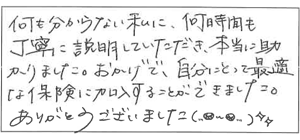 何も分からない私に、何時間も
丁寧に説明していただき、本当に助
かりました。おかげで、自分にとって最適
な保険に加入することができました。
ありがとうございました(..◡~◡..)☆☆